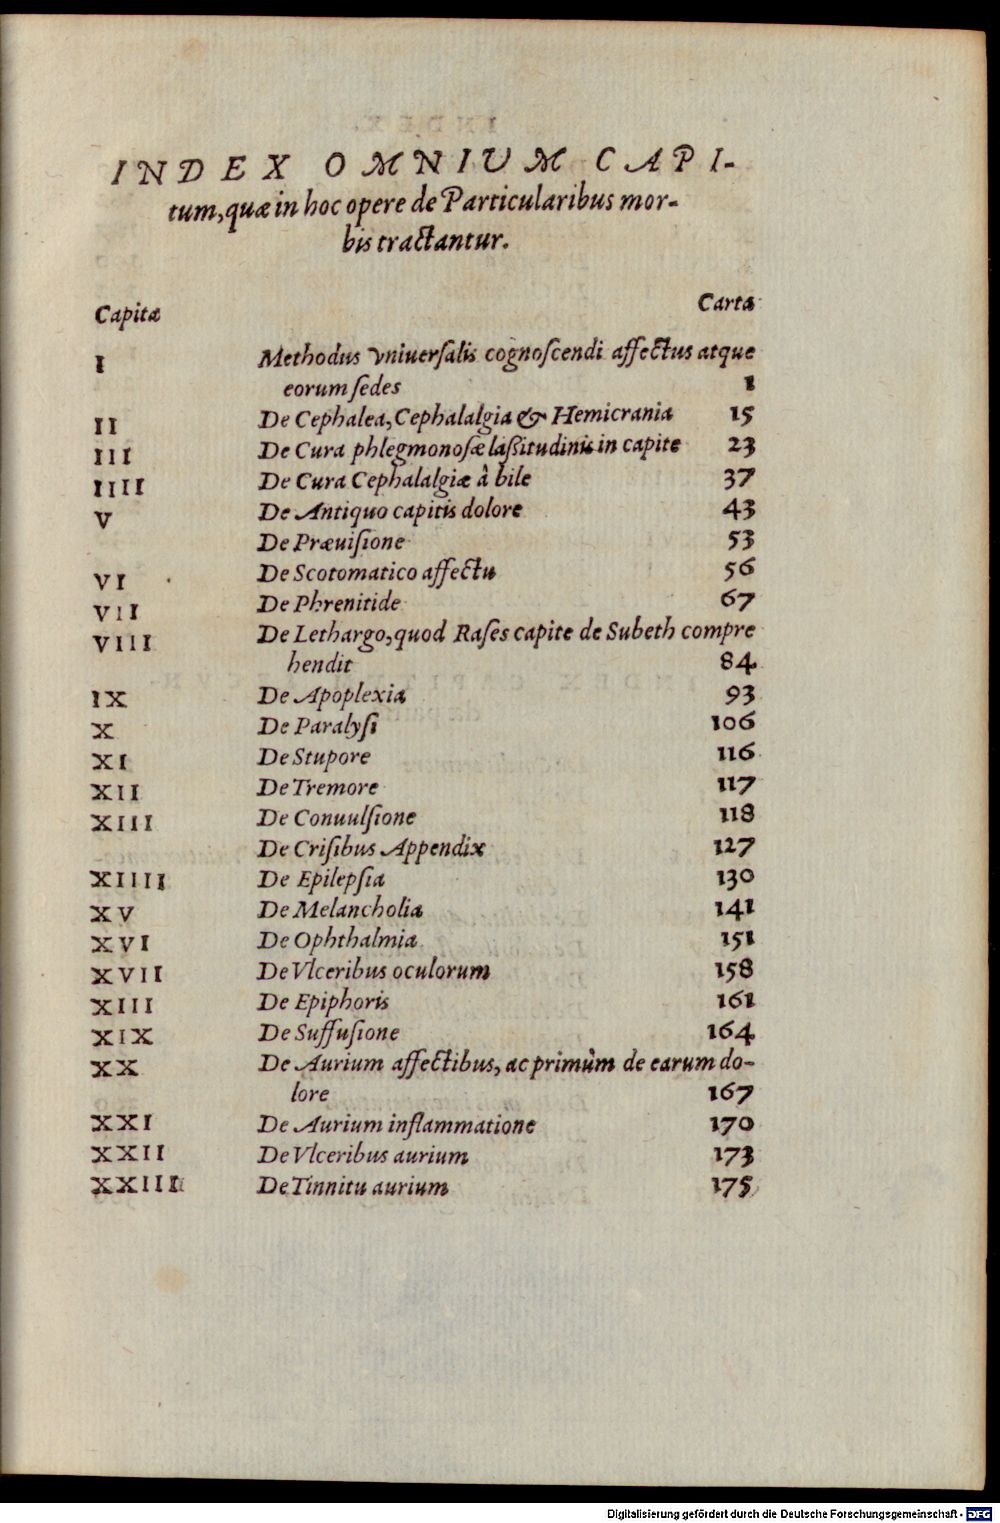 INDEX OMNIUM CAPI-
tum, quæ in hoc opere de Particularibus mor-
bis tractantur.
Capitæ Carta
I Methodus vniuerſalis cognoſcendi affectus atque
eorum ſedes 1
II De Cephalea, Cephalalgia & Hemicrania 15
III De Cura phlegmonoſæ laßitudinis in capite 23
IIII De Cura Cephalalgiæ à bile 37
V De Antiquo capitis dolore 43
De Præuiſione 53
VI De Scotomatico affectu 56
VII De Phrenitide 67
VIII De Lethargo, quod Raſes capite de Subeth compre
hendit 84
IX De Apoplexia 93
X De Paralyſi 106
XI De Stupore 116
XII De Tremore 117
XIII De Conuulſione 118
De Criſibus Appendix 127
XIIII De Epilepſia 130
XV De Melancholia 141
XVI De Ophthalmia 151
XVII De Vlceribus oculorum 158
XIII De Epiphoris 161
XIX De Suffuſione 164
XX De Aurium affectibus, ac primùm de earum do-
lore 167
XXI De Aurium inflammatione 170
XXII De Vlceribus aurium 173
XXIII De Tinnitu aurium 175
Digitalisierung gefördert durch die Deutsche Forschungsgemeinschaft - DFG